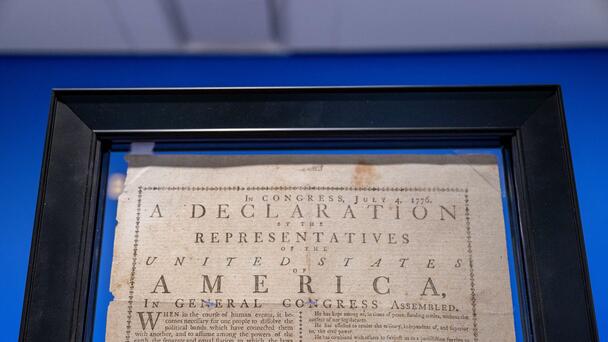 IN CONGRESS, JULY 4, 1776.
A DECLARATION
BY THE
REPRESENTATIVES
OF THE
UNITED STATES
OF
AMERICA,
IN GENERAL CONGRESS ASSEMBLED.
WHEN in the course of human events, it be-
comes necessary for one people to dissolve the
political bands which have connected them
with another, and to assume among the powers of the
earth, the separate and equal station to which the laws
He has kept among us, in times of peace, standing armies, without the
consent of our legislatures.
He has affected to render the military, independent of, and superior
to, the civil power.
He has combined with others to subject us to a jurisdiction foreign to